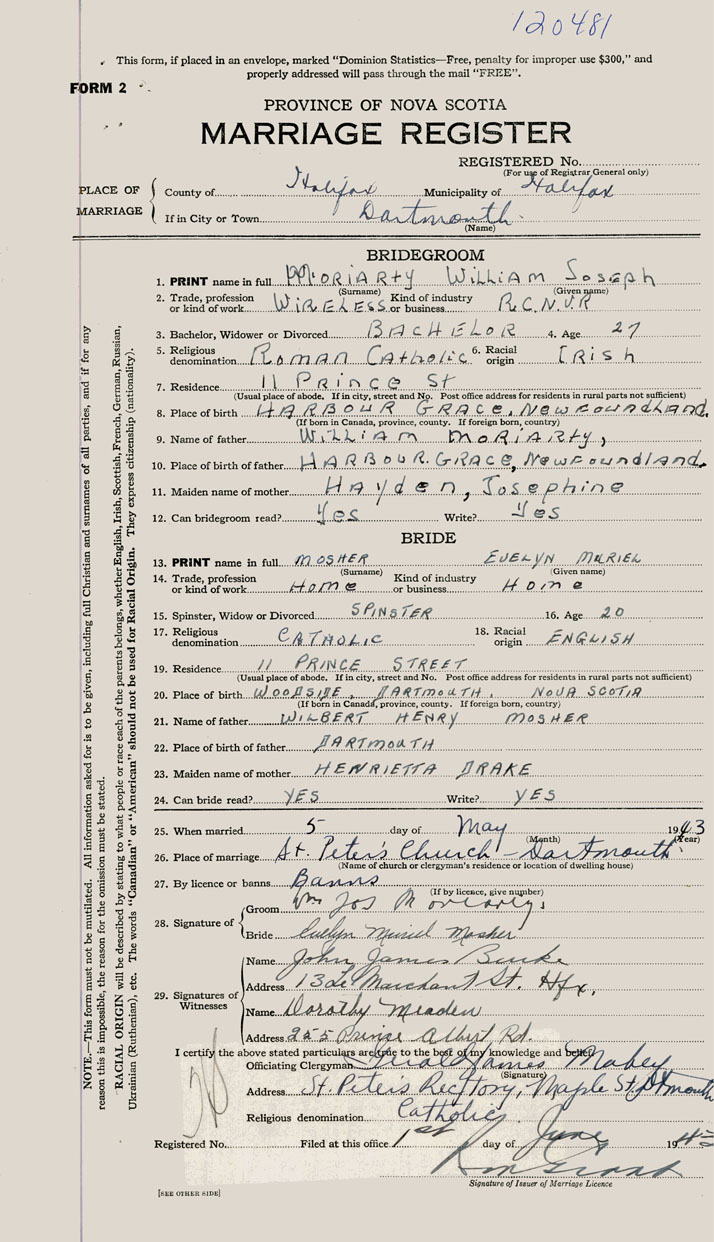 120481
This form, if placed in an envelope, marked "Dominion Statistics—Free, penalty for improper use $300," and
properly addressed will pass through the mail "FREE".
FORM 2
PROVINCE OF NOVA SCOTIA
MARRIAGE REGISTER
REGISTERED No.
(For use of Registrar General only)
PLACE OF MARRIAGE
County of Halifax Municipality of Halifax
If in City or Town Dartmouth
(Name)
BRIDEGROOM
1. PRINT name in full MORIARTY William Joseph
(Surname) (Given name)
2. Trade, profession or kind of work WIRELESS Kind of industry or business R.C.N.V.R
3. Bachelor, Widower or Divorced BACHELOR 4. Age 27
5. Religious denomination Roman Catholic 6. Racial origin Irish
7. Residence 11 Prince St
(Usual place of abode. If in city, street and No. Post office address for residents in rural parts not sufficient)
8. Place of birth HARBOUR GRACE, Newfoundland.
(If born in Canada, province, county. If foreign born, country)
9. Name of father William Moriarty,
10. Place of birth of father HARBOUR.GRACE, Newfoundland.
11. Maiden name of mother Hayden, Josephine
12. Can bridegroom read? Yes Write? Yes
BRIDE
13. PRINT name in full MOSHER EVELYN MURIEL
(Surname) (Given name)
14. Trade, profession or kind of work Home Kind of industry or business Home
15. Spinster, Widow or Divorced SPINSTER 16. Age 20
17. Religious denomination CATHOLIC 18. Racial origin ENGLISH
19. Residence 11 PRINCE STREET
(Usual place of abode. If in city, street and No. Post office address for residents in rural parts not sufficient)
20. Place of birth WOODSIDE, DARTMOUTH, NOVA SCOTIA
(If born in Canada, province, county. If foreign born, country)
21. Name of father WILBERT HENRY MOSHER
22. Place of birth of father DARTMOUTH
23. Maiden name of mother HENRIETTA DRAKE
24. Can bride read? YES Write? YES
25. When married 5 day of May 1943
(Month) (Year)
26. Place of marriage St. Peter's Church – Dartmouth
(Name of church or clergyman's residence or location of dwelling house)
27. By licence or banns Banns
(If by licence, give number)
28. Signature of
Groom Wm Jos Moriarty
Bride Evelyn Muriel Mosher
29. Signatures of Witnesses
Name John James Burke
Address 13 Le Marchant St. Hfx,
Name Dorothy Meaden
Address 255 Prince Albert Rd.
I certify the above stated particulars are true to the best of my knowledge and belief.
Officiating Clergyman James Mabey
(Signature)
Address St. Peter's Rectory, Maple St. Dtmouth
Religious denomination Catholic
Registered No. Filed at this office 1st day of June 1943
Signature of Issuer of Marriage Licence
[SEE OTHER SIDE]
NOTE.—This form must not be mutilated. All information asked for is to be given, including full Christian and surnames of all parties, and if for any
reason this is impossible, the reason for the omission must be stated.
RACIAL ORIGIN will be described by stating to what people or race each of the parents belongs, whether English, Irish, Scottish, French, German, Russian,
Ukrainian (Ruthenian), etc. The words "Canadian" or "American" should not be used for Racial Origin. They express citizenship (nationality).